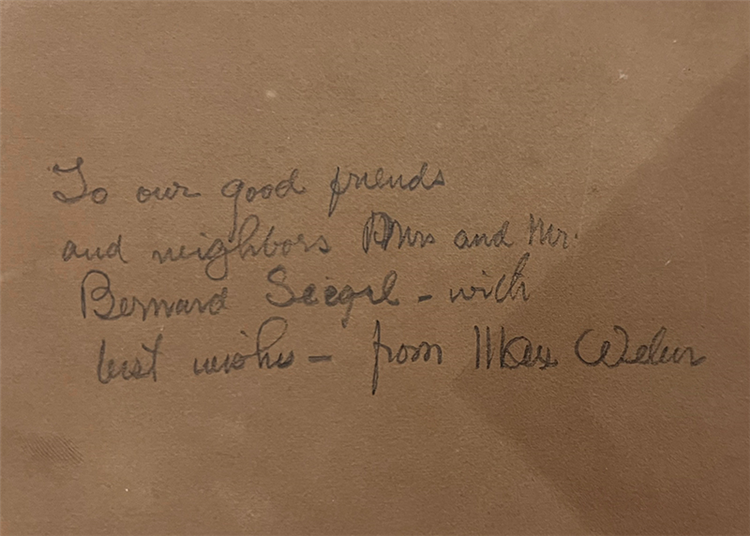 To our good friends
and neighbors Mrs and Mr.
Bernard Siegel - with
best wishes - from Max Weber